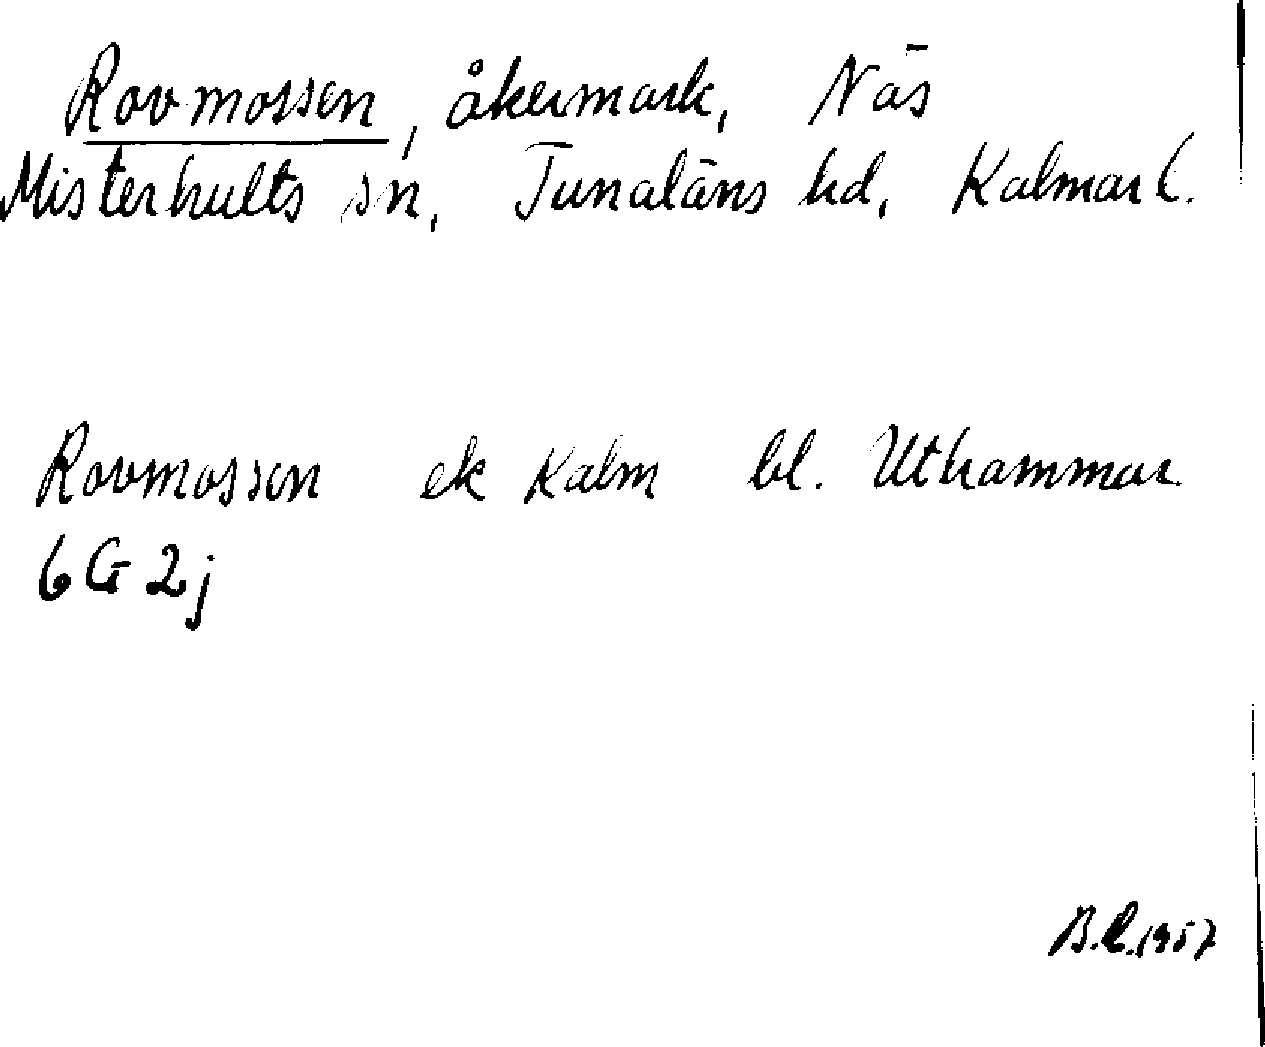 Rovmossen, åkermark, Näs
Misterhults sn, Tunaläns hd, Kalmar l.
Rovmossen ek Kalm bl. Uthammar
6G2j
B.E.1957